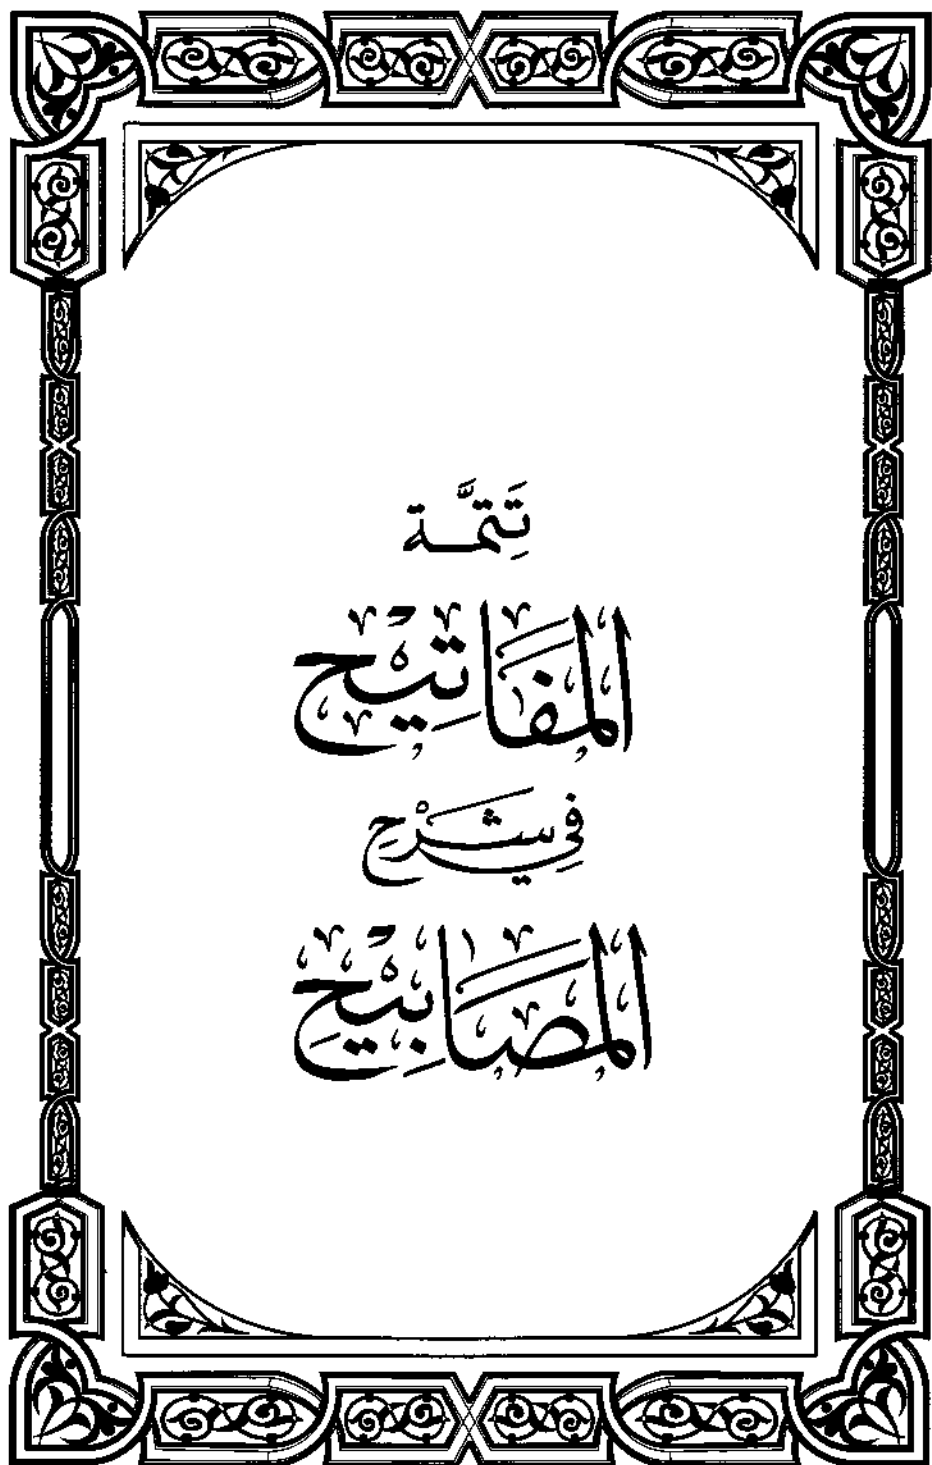 تَتِمَّة
المَفَاتِيْح
فِي شَرْحِ
المَصَابِيْحِ